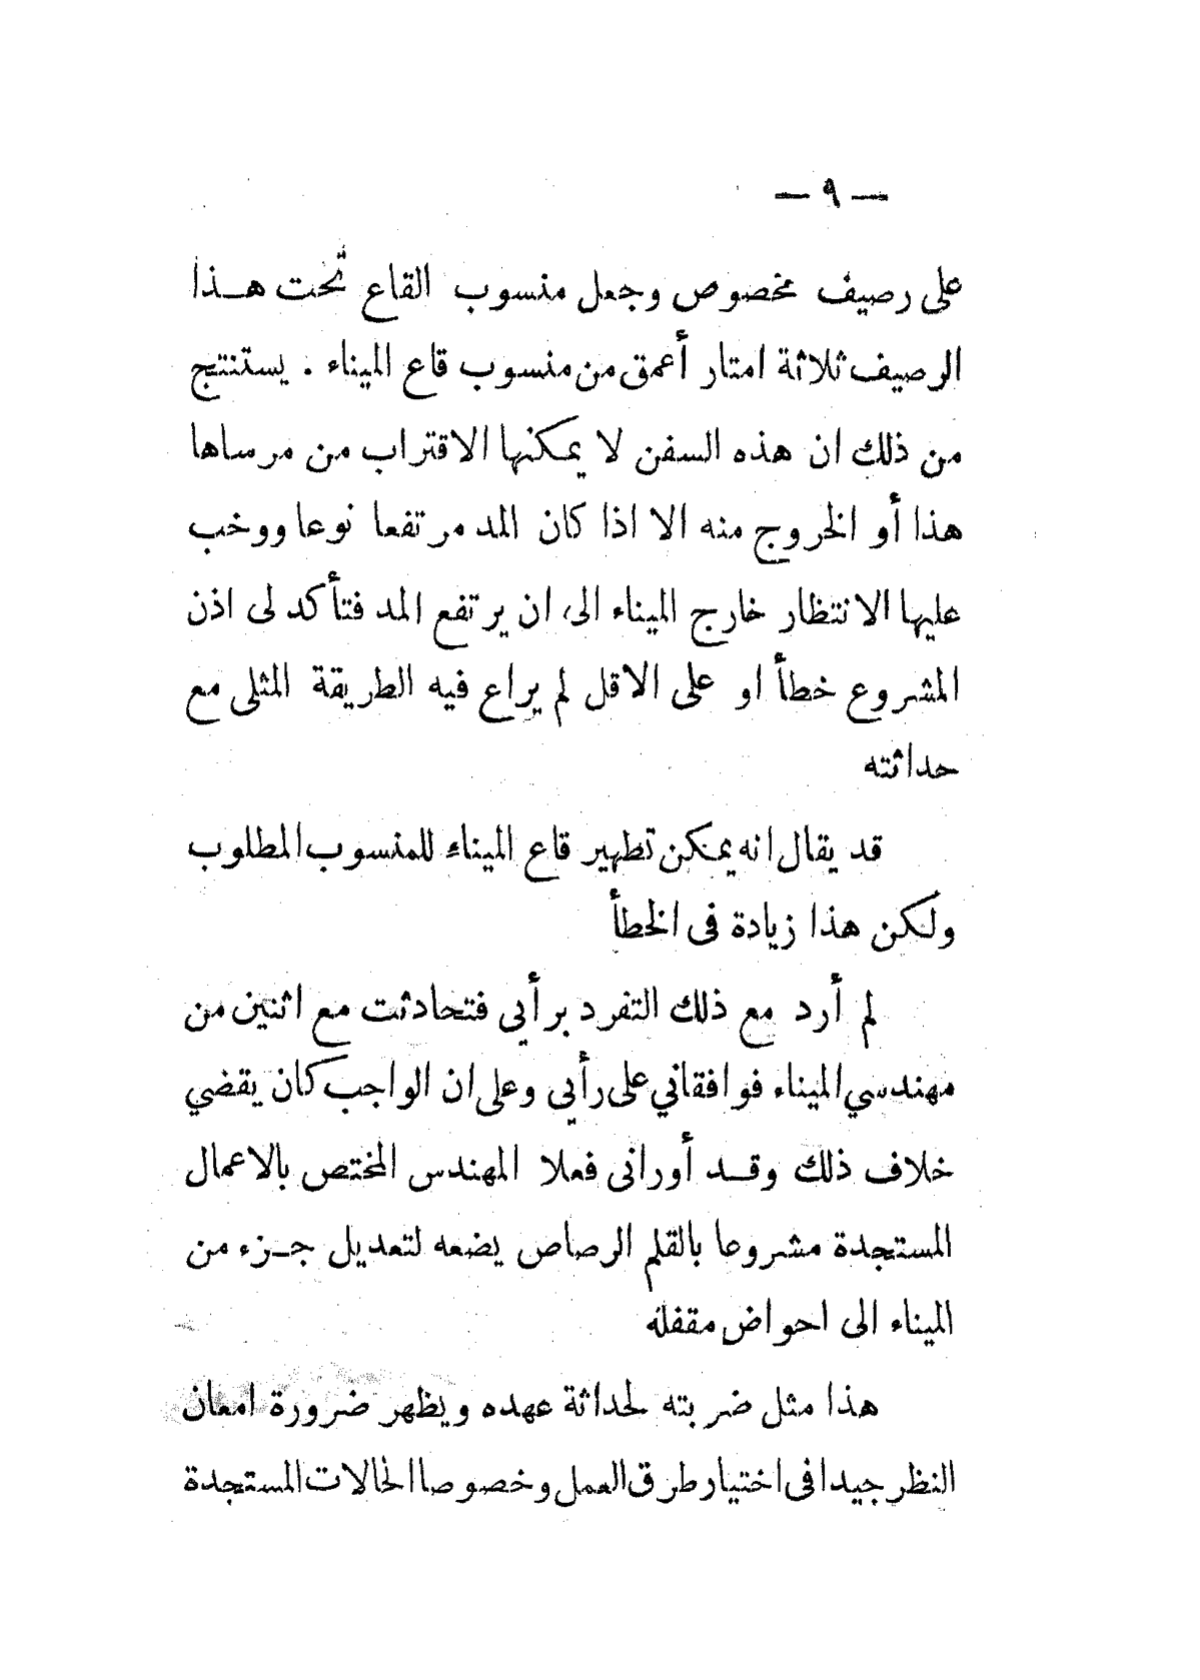 — ٩ —
على رصيف مخصوص وجعل منسوب القاع تحت هـذا
الرصيف ثلاثة امتار أعمق من منسوب قاع الميناء . يستنتج
من ذلك ان هذه السفن لا يمكنها الاقتراب من مرساها
هذا أو الخروج منه الا اذا كان المد مرتفعا نوعا ووخب
عليها الانتظار خارج الميناء الى ان يرتفع المد فتأكد لى اذن
المشروع خطأ او على الاقل لم يراع فيه الطريقة المثلى مع
حداثته
قد يقال انه يمكن تطهير قاع الميناء للمنسوب المطلوب
ولكن هذا زيادة فى الخطأ
لم أرد مع ذلك التفرد برأيي فتحادثت مع اثنين من
مهندسي الميناء فوافقاني على رأيي وعلى ان الواجب كان يقضي
خلاف ذلك وقـد أورانى فعلا المهندس المختص بالاعمال
المستجدة مشروعا بالقلم الرصاص يضعه لتعديل جـزء من
الميناء الى احواض مقفلة
هذا مثل ضربته لحداثة عهده ويظهر ضرورة امعان
النظر جيدا فى اختيار طرق العمل وخصوصا الحالات المستجدة